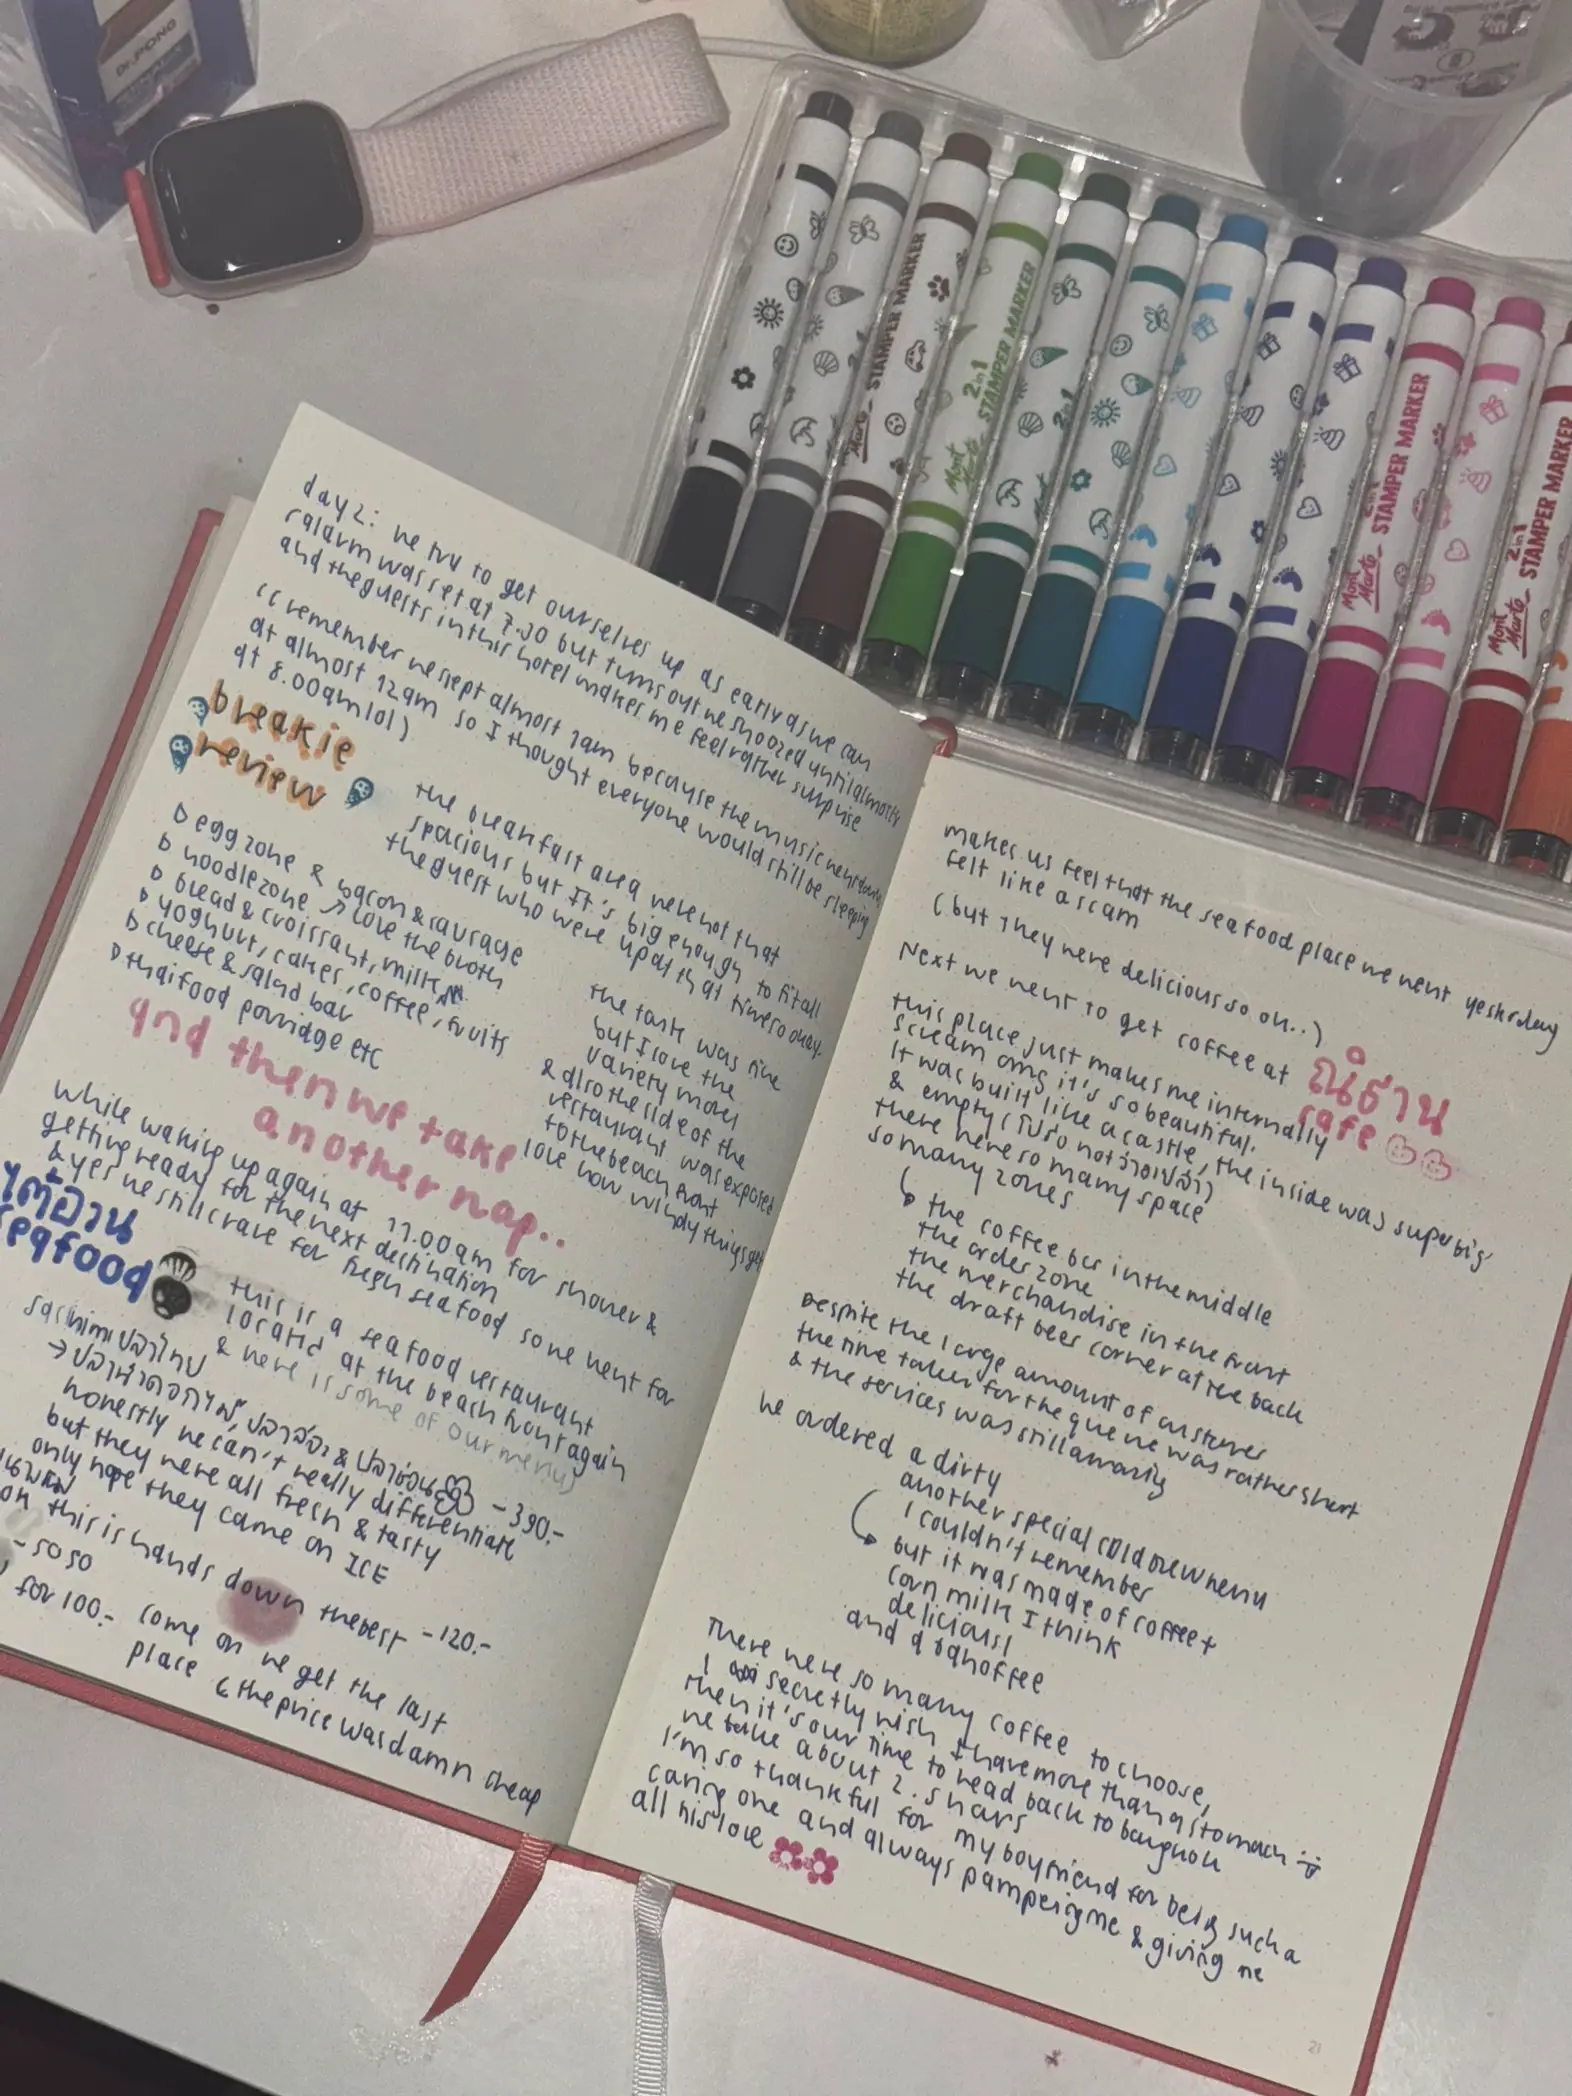 Dr.PONG
STAMPER MARKER
Mont Marte
2in1
STAMPER MARKER
Mont Marte
2in1
Mont Marte
STAMPER MARKER
Mont Marte
2in1
STAMPER MARKER
Mont Marte
day 2: we try to get ourselves up as early as we can
(alarm was set at 7.30 but turns out we snoozed until almost 8
and the guests in this hotel makes me feel rather surprise
(I remember we slept almost 1am because the music went
at almost 12am so I thought everyone would still be sleeping
at 8.00am lol)
breakie
review
the breakfast area were not that
spacious but it's big enough to fit all
the guest who were up at that time so okay.
egg zone & bacon & sausage
noodle zone → love the broth
bread & croissant, milk
yoghurt, cakes, coffee, fruits
cheese & salad bar
thaifood porridge etc
the taste was fine
but I love the
variety more
& also the side of the
restaurant was exposed
to the beach front
love how windy things get
and then we take
another nap..
while waking up again at 11.00am for shower &
getting ready for the next destination
& yes we still crave for fresh seafood so we went for
seafood
this is a seafood restaurant
located at the beach front again
& here is some of our menus
sashimi ปลาไทย
honestly we can't really differentiate
but they were all fresh & tasty
only hope they came on ICE
-390.-
this is hands down the best -120.-
- soso
for 100.-
come on we get the last
place
& the price was damn cheap
makes us feel that the seafood place we went yesterday
felt like a scam
(but they were delicious so ok..)
Next we went to get coffee at
cafe
this place just makes me internally
scream omg it's so beautiful.
It was built like a castle, the inside was super big
& empty
there were so many space
so many zones
the coffee bar in the middle
the order zone
the merchandise in the front
the draft beer corner at the back
Despite the large amount of customers
the time taken for the queue was rather short
& the services was still amazing
We ordered a dirty
another special cold brew menu
I couldn't remember
but it was made of coffee +
corn milk I think
delicious!
and a banoffee
There were so many coffee to choose,
I secretly wish I have more than a stomach
then it's our time to head back to bangkok
we take about 2.5 hours
I'm so thankful for my boyfriend for being such a
caring one and always pampering me & giving me
all his love
21